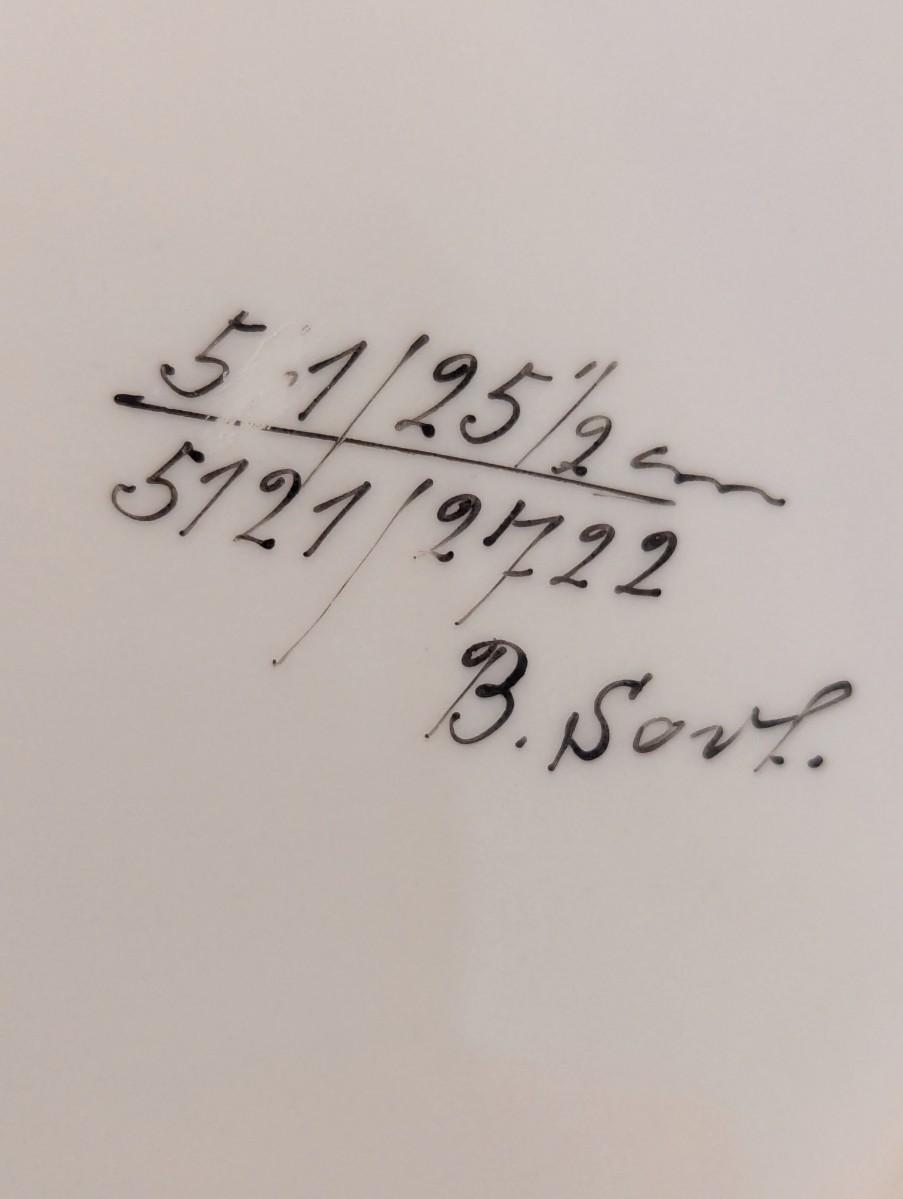 5 1/25 1/2 cm
5121/2722
B. Sort.